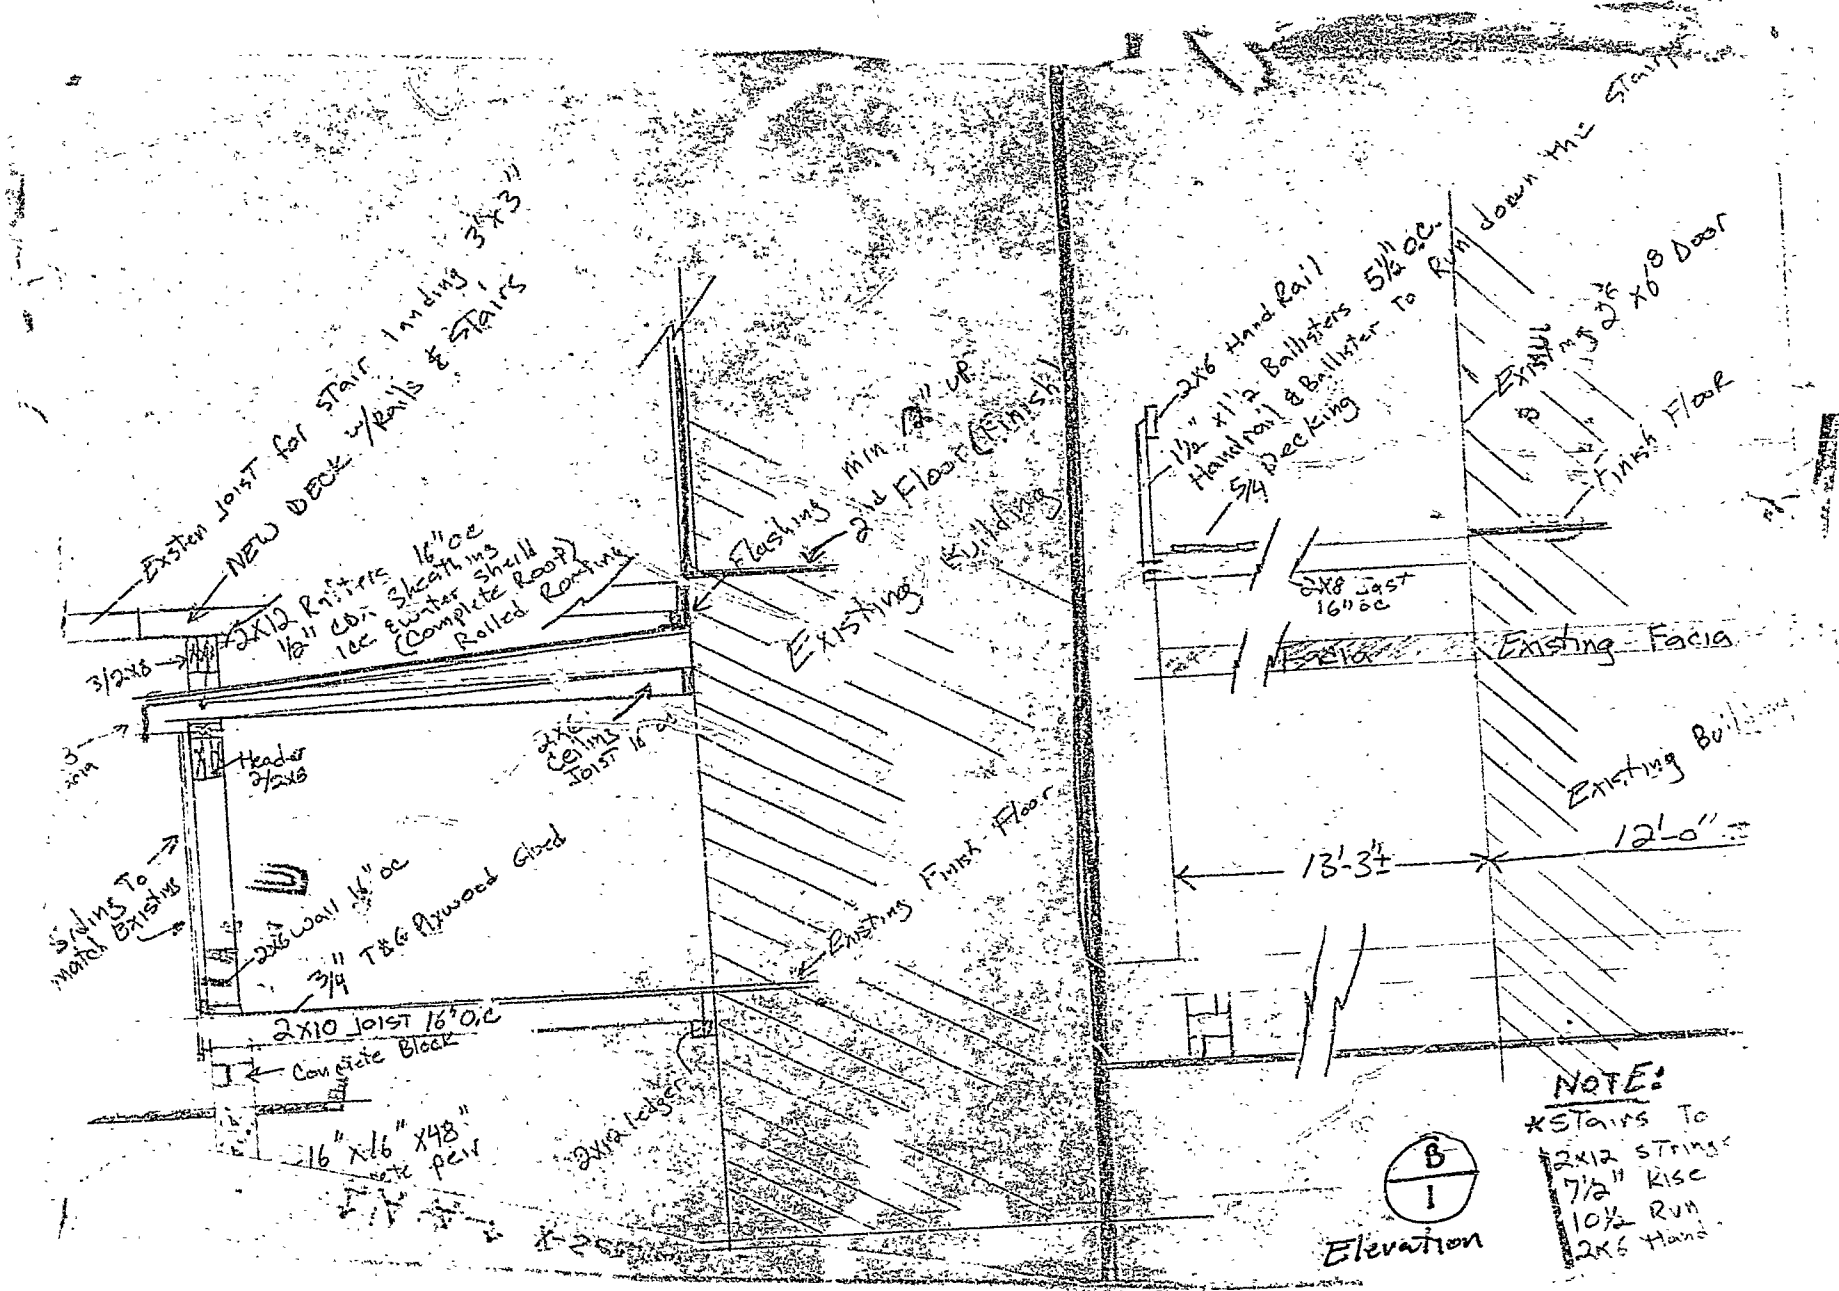 Exsten Joist for stair landing 3'x3"
NEW DECK w/Rails & Stairs
2x12 Rafters 16" oc
1/2" CDX Sheathing
Ice & water Sheild
(Complete Roof)
Rolled Roofing
3/2x8
Header
2/2x8
2x6
Ceiling
Joist 16" oc
Siding To
match Existing
2x6 wall 16" oc
3/4" T&G Plywood Glued
2x10 Joist 16" O.C
Concrete Block
16" x 16" x48"
peir
2x12 ledger
Flashing min 12" up
2nd Floor (Finish)
Existing Building
Existing Finish Floor
2x6 Hand Rail
1 1/2" x 1 1/2 Ballisters 5 1/2" O.C.
Handrail & Ballister To Run down the Stairs
5/4 Decking
Existing 2 x6 8 Door
Finish Floor
2x8 Jost
16" oc
Facia
Existing Facia
Existing Building
13'-3"±
12'-0"
NOTE:
*Stairs To
2x12 string
7 1/2" Rise
10 1/2 Run
2x6 Hand
B
1
Elevation